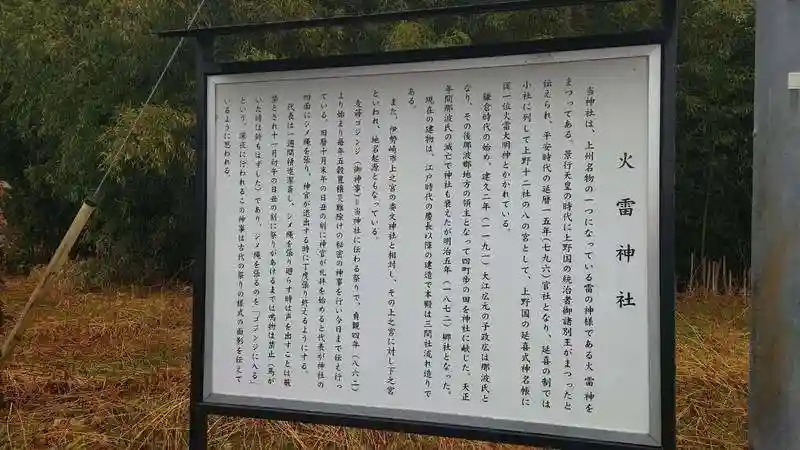 火雷神社
当神社は、上州名物の一つになっている雷の神様である火雷神を
まつってある。景行天皇の時代に上野国の統治者御諸別王がまつったと
伝えられ、平安時代の延暦一五年(七九六)官社となり、延喜の制では
小社に列して上野十二社の八の宮として、上野国の延喜式神名帳に
従一位火雷大明神とかかれている。
鎌倉時代の始め、建久二年(一一九一)大江広元の子政広は那波氏と
なり、その後那波郡地方の領主となって四町歩の田を神社に献じた。天正
年間那波氏の滅亡で神社も衰えたが明治五年(一八七二)郷社となった。
現在の建物は、江戸時代の慶長以降の建造で本殿は三間社流れ造りで
ある。
また、伊勢崎市上之宮の委文神社と相対し、その上之宮に対し下之宮
といわれ、地名起源ともなっている。
麦蒔ゴジンジ(御神事)は当神社に伝わる祭りで、貞観四年(八六二)
より始まり毎年五穀豊穣災難除けの秘密の神事を行い今日まで伝え行っ
ている。旧暦十月末午の日丑の刻に神官が礼拝を始めると代表が神社の
四面にシメ縄を張り、神官が退出する時に丁度張り終えるようにする。
代表は一週間精進潔斎し、シメ縄を張り廻らす時は声を出すことは厳
禁とされ十一月初午の日丑の刻に祭りがあけるまでは鳴物は禁止(馬が
いた時は鈴もはずした)であり、シメ縄を張るのを「ゴジンジに入る」
という。深夜に行われるこの神事は古代の祭りの様式の面影を伝えて
いるように思われる。